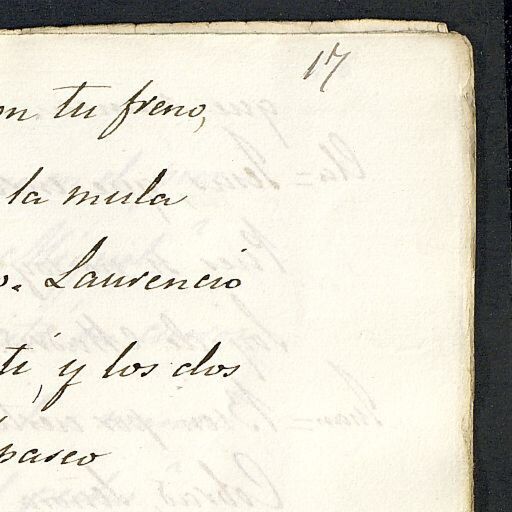 17
on tu freno,
la mula
o. Laurencio
ti, y los dos
paseo